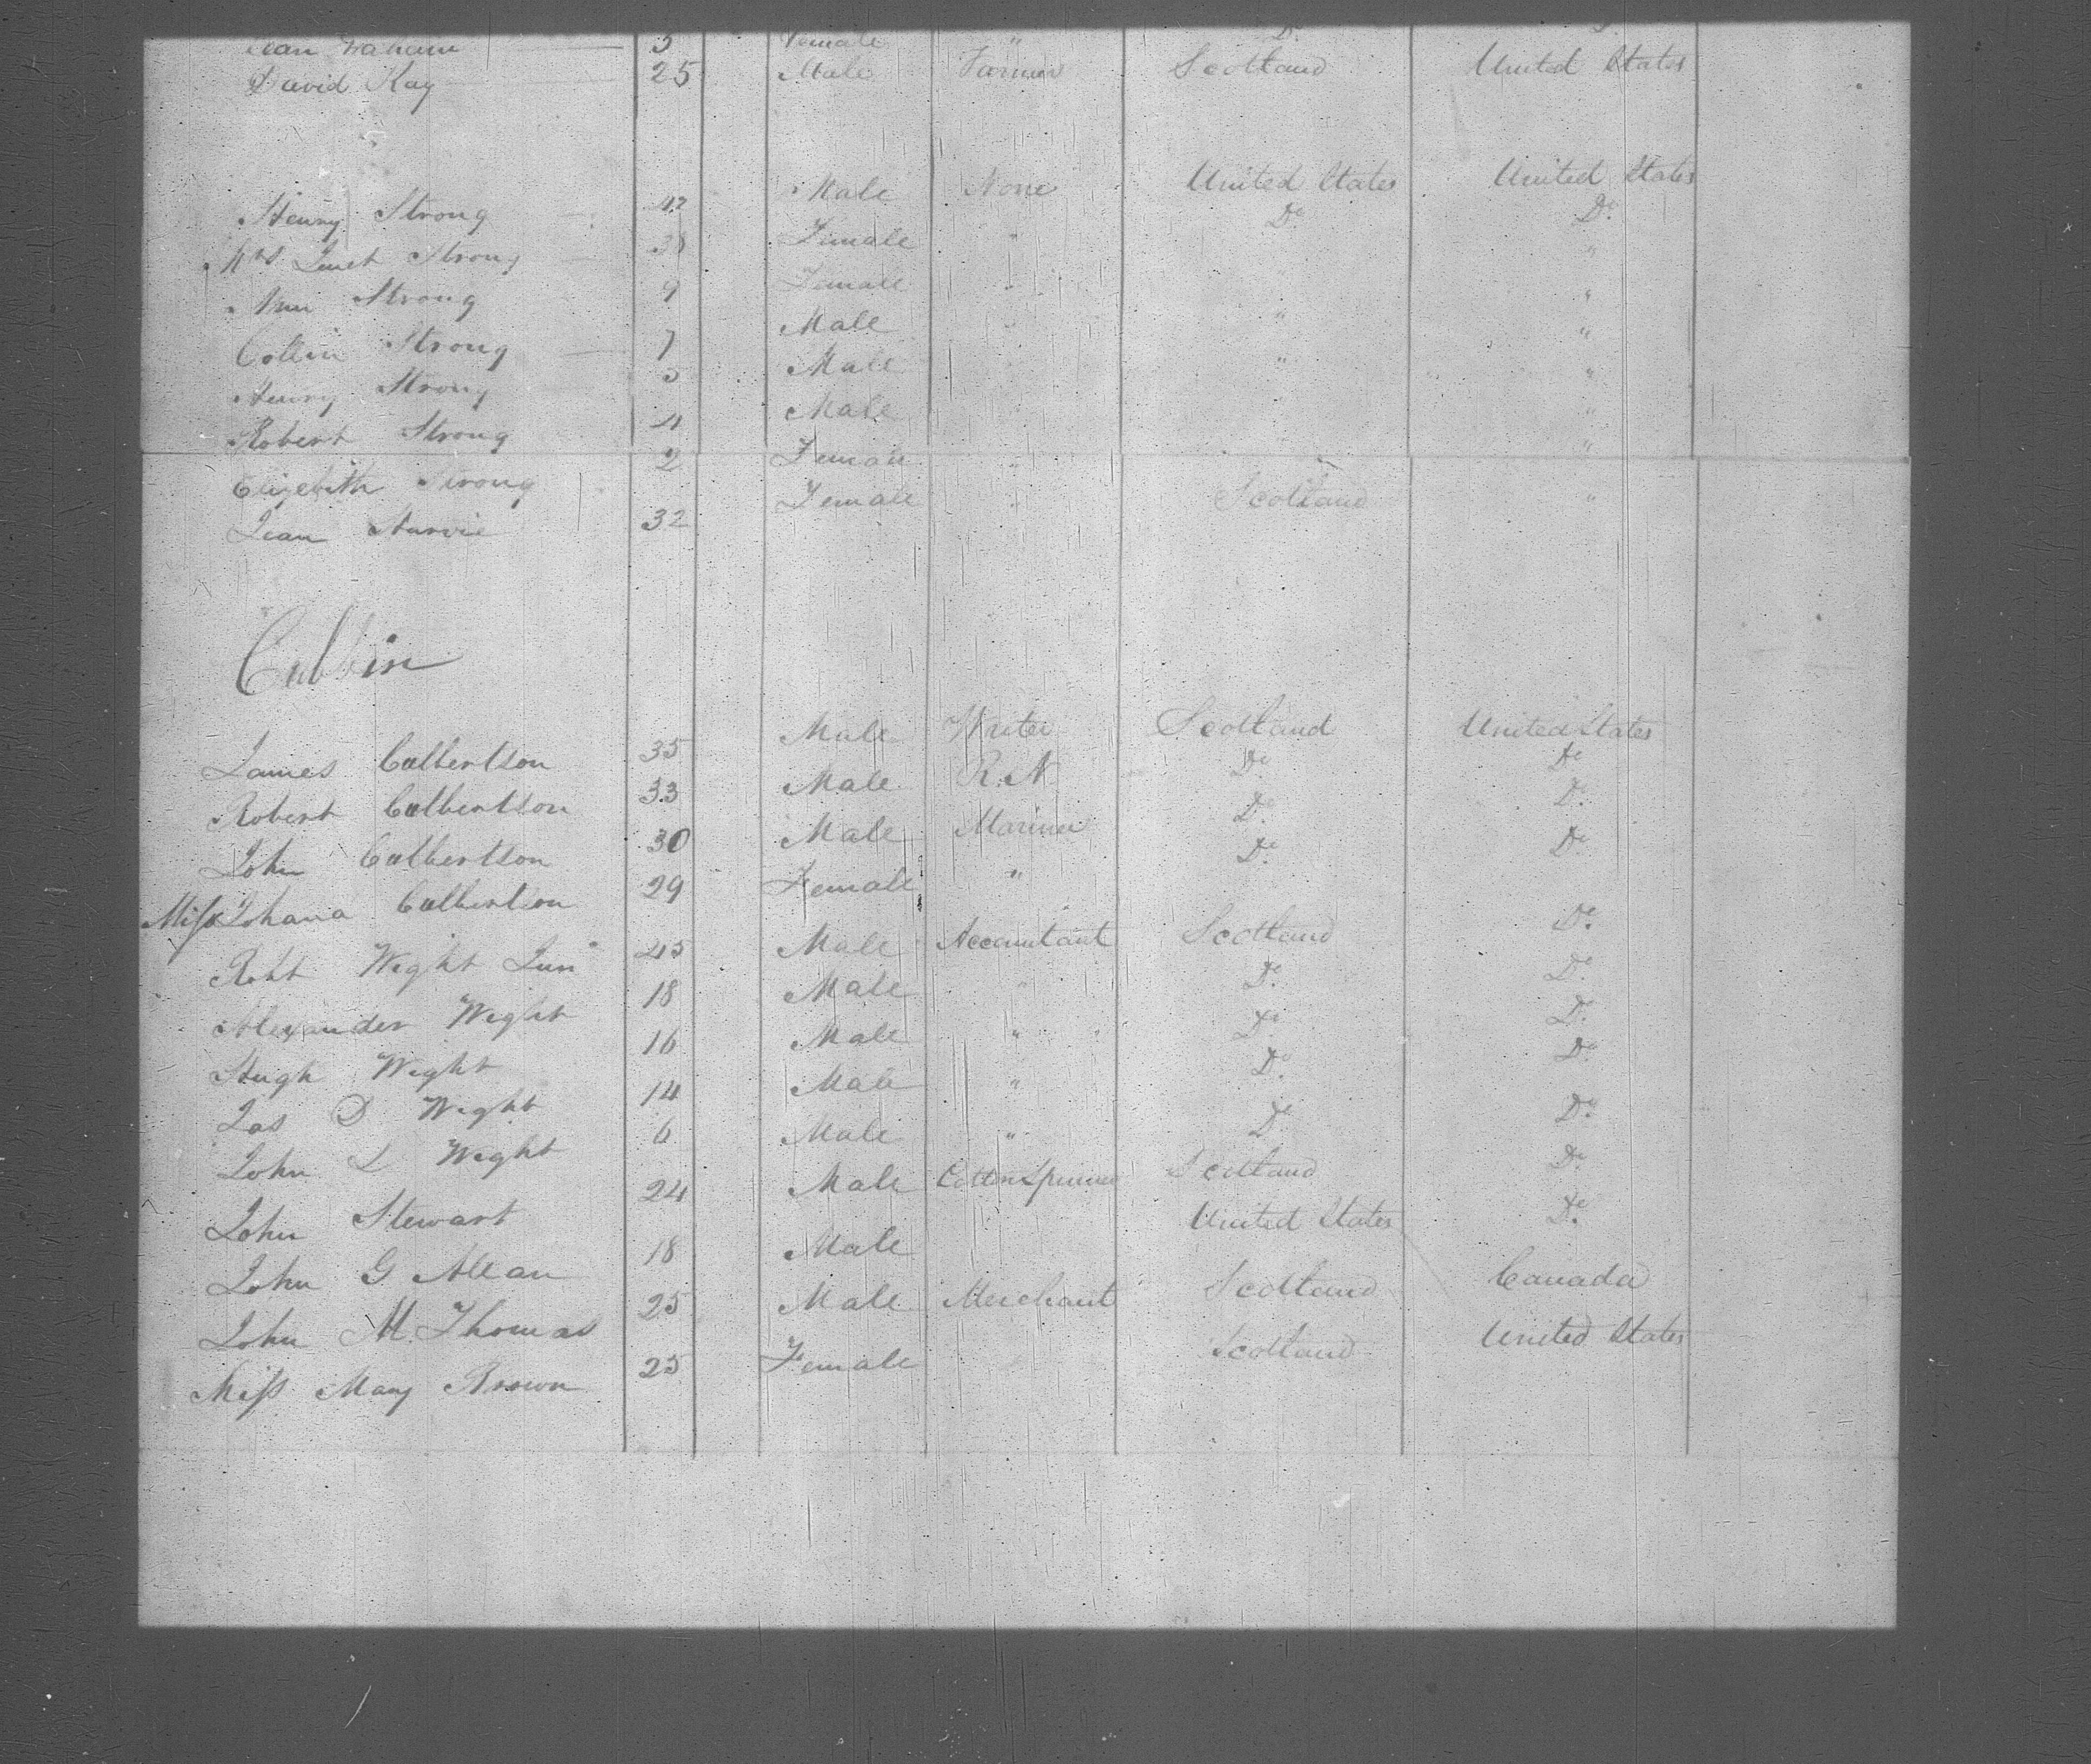 Jean Graham 5 Female " Do Do
David Kay 25 Male Farmer Scotland United States
Henry Strong 42 Male None United States United States
Mrs Janet Strong 38 Female " Do Do
Ann Strong 9 Female " "
Collin Strong 7 Male " " "
Henry Strong 5 Male " "
Robert Strong 4 Male "
Elizebith Strong 2 Female " "
Jean 32 Female " Scotland "
Cabbin
James Culbertson 35 Male Writer Scotland United States
Robert Culbertson 33 Male R.N Do Do
John Culbertson 30 Male Mariner Do Do
Miss Johana Culbertson 29 Female " Do Do
Robt Wight Jun 45 Male Accountant Scotland Do
Alexander Wight 18 Male " Do Do
Hugh Wight 16 Male " Do Do
Jas D Wight 14 Male " Do Do
John L Wight 6 Male " Do Do
John Stewart 24 Male Cotton Spinner Scotland Do
John G Allan 18 Male United States Do
John M. Thomas 25 Male Merchant Scotland Canada
Miss Mary Brown 25 Female Scotland United States